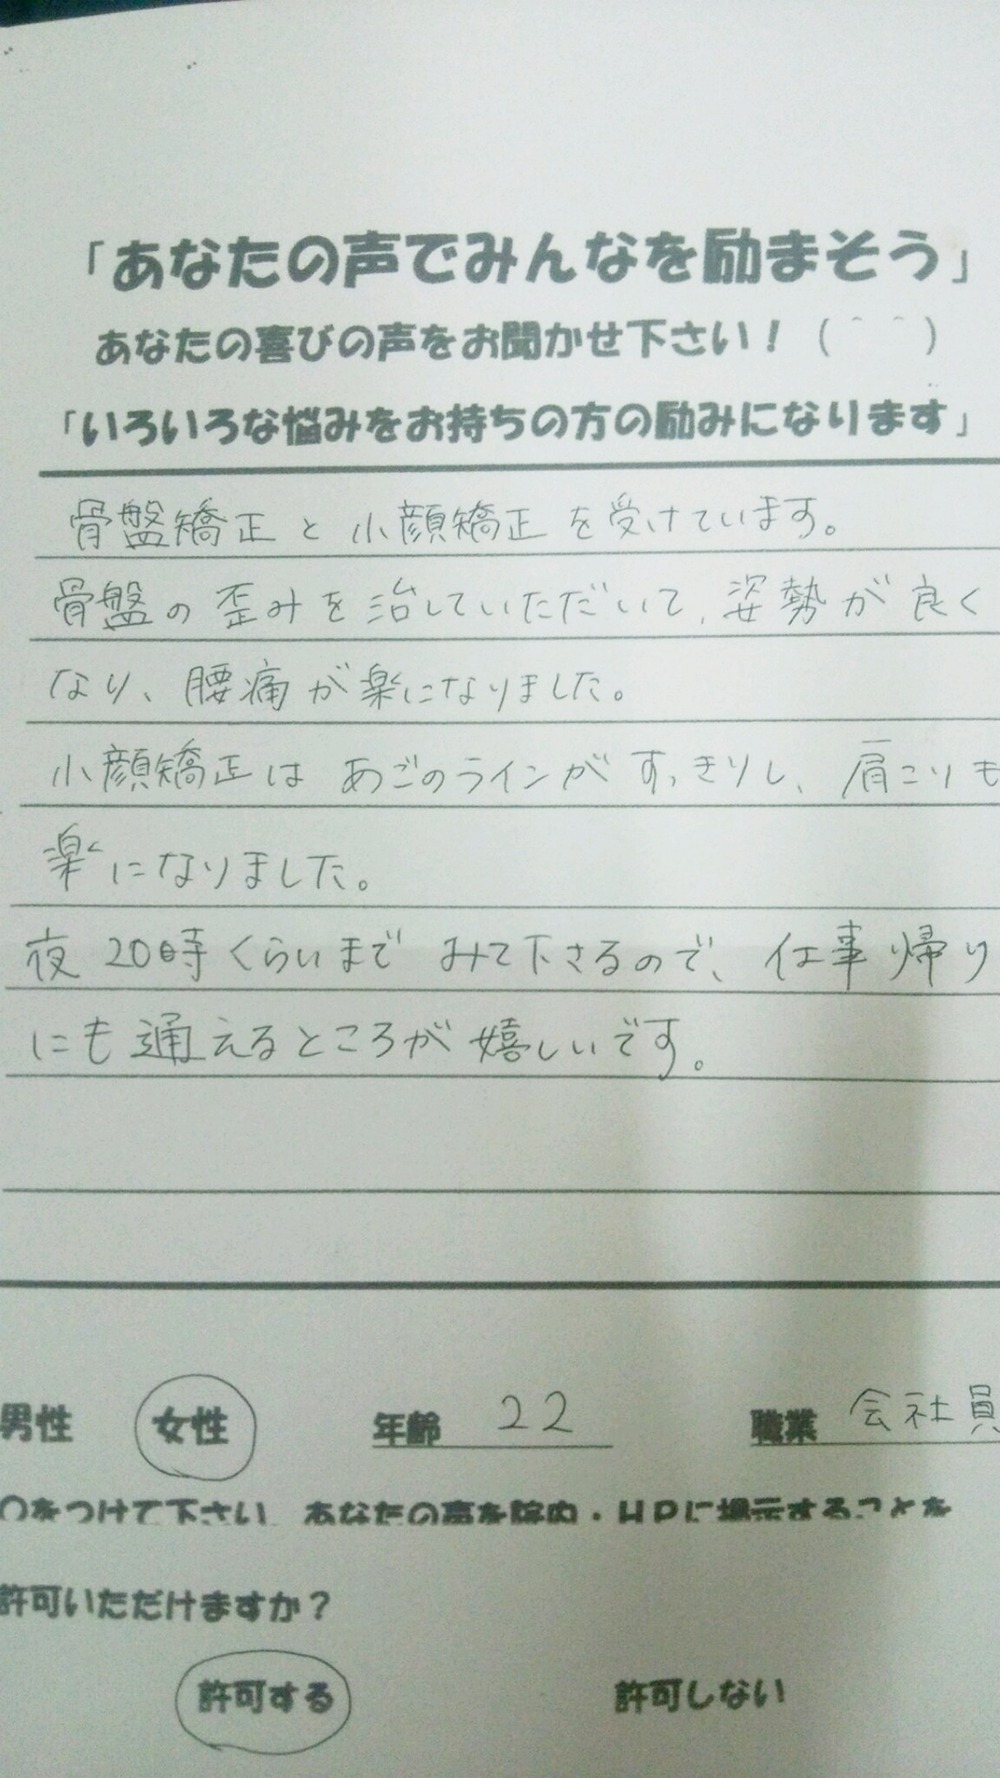 「あなたの声でみんなを励まそう」
あなたの喜びの声をお聞かせ下さい！（＾＾）
「いろいろな悩みをお持ちの方の励みになります」
骨盤矯正と小顔矯正を受けています。
骨盤の歪みを治していただいて、姿勢が良く
なり、腰痛が楽になりました。
小顔矯正はあごのラインがすっきりし、肩こりも
楽になりました。
夜20時くらいまでみて下さるので、仕事帰り
にも通えるところが嬉しいです。
男性 女性 年齢 22 職業 会社員
○をつけて下さい、あなたの声を院内・HPに掲示することを
許可いただけますか？
許可する 許可しない